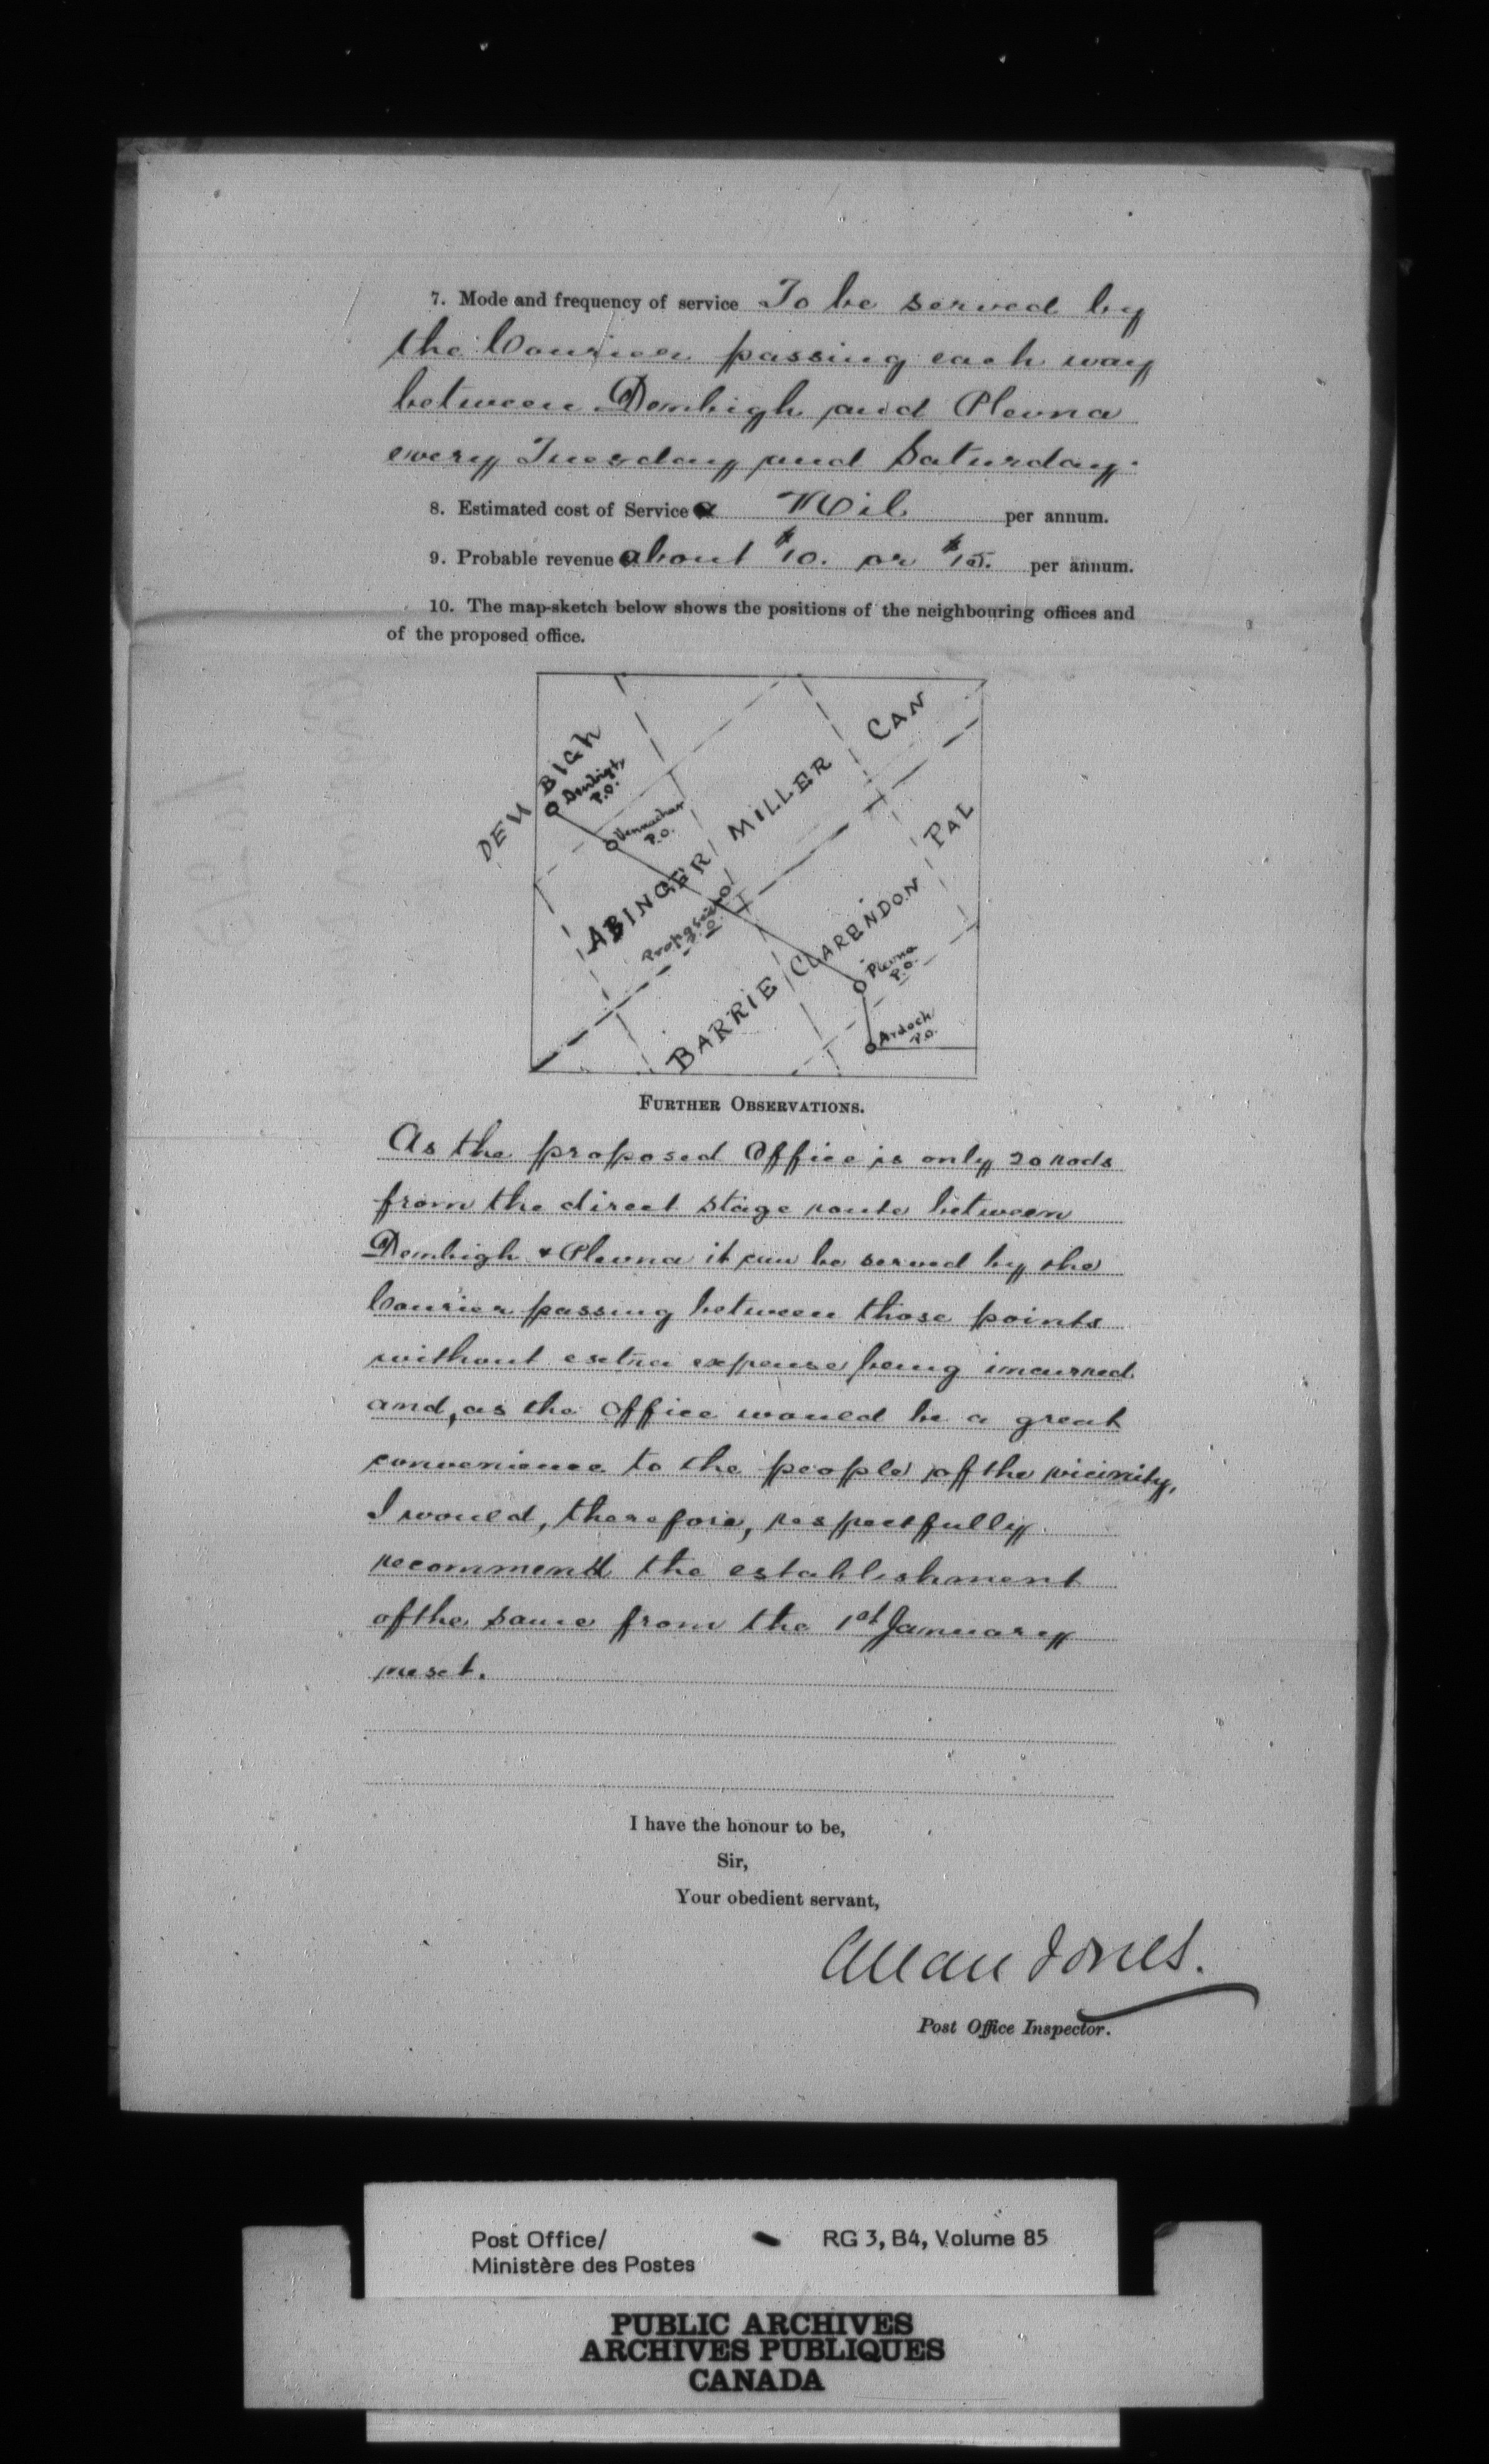 7. Mode and frequency of service To be served by
the Courier passing each way
between Denbigh and Plevna
every Tuesday and Saturday.
8. Estimated cost of Service Nil per annum.
9. Probable revenue about $10. or $15. per annum.
10. The map-sketch below shows the positions of the neighbouring offices and
of the proposed office.
DENBIGH
Denbigh
P.O.
Vennachar
P.O.
ABINGER
MILLER
CAN
Proposed
P.O.
BARRIE
CLARENDON
PAL
Plevna
P.O.
Ardoch
P.O.
FURTHER OBSERVATIONS.
As the proposed Office is only 20 rods
from the direct stage route between
Denbigh & Plevna it can be served by the
Courier passing between those points
without extra expense being incurred
and, as the Office would be a great
convenience to the people of the vicinity,
I would, therefore, respectfully
recommend the establishment
of the same from the 1st January
next.
I have the honour to be,
Sir,
Your obedient servant,
Allan Jones.
Post Office Inspector.
Post Office/ RG 3, B4, Volume 85
Ministère des Postes
PUBLIC ARCHIVES
ARCHIVES PUBLIQUES
CANADA